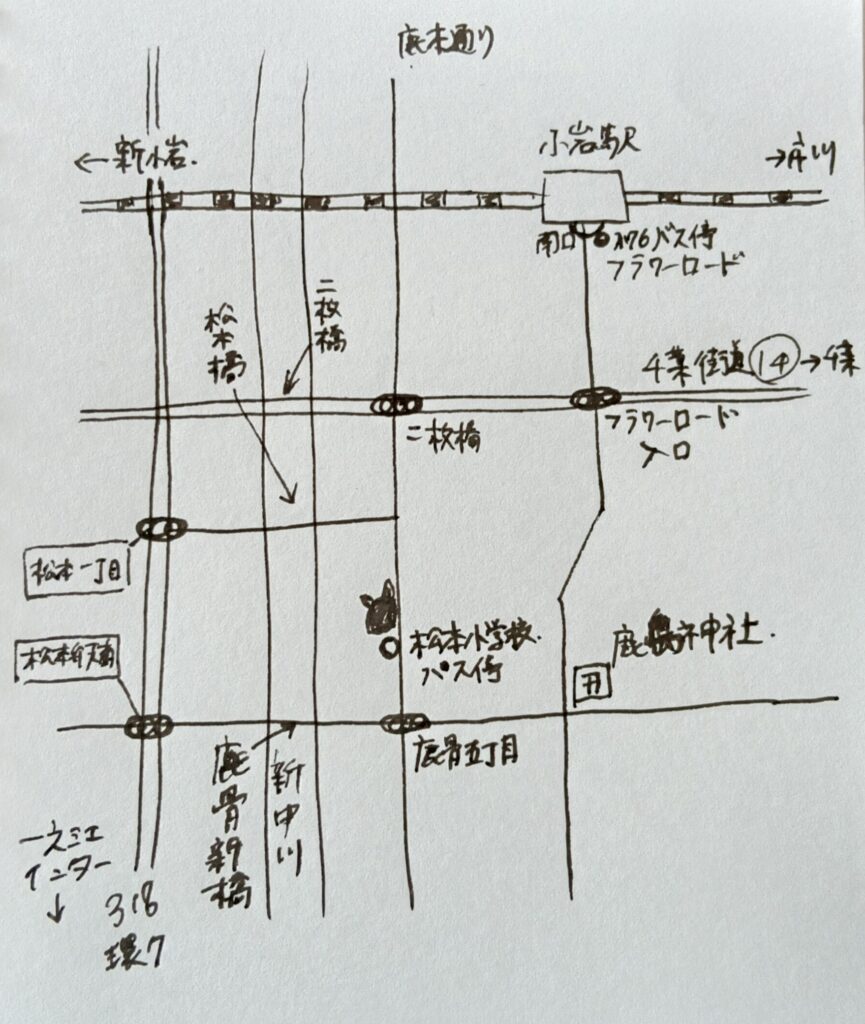 鹿本通り
←新小岩.
小岩駅
→市川
南口
6バス停
フラワーロード
二枚橋
松本橋
千葉街道 14 →千葉
二枚橋
フラワーロード
入口
松本一丁目
松本小学校.
バス停
鹿島神社.
松本弁天前
鹿骨五丁目
鹿骨新橋
新中川
一之江
インター
↓
318
環7